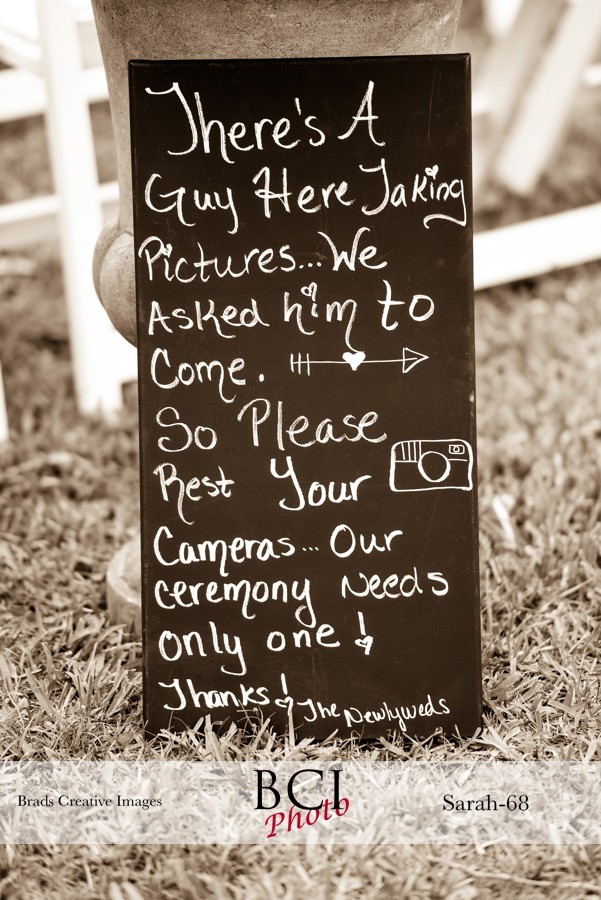 There's A
Guy Here Taking
Pictures...We
Asked him to
Come.
So Please
Rest Your
Cameras... Our
ceremony Needs
only one!
Thanks! The Newlyweds
Brads Creative Images BCI Photo Sarah-68